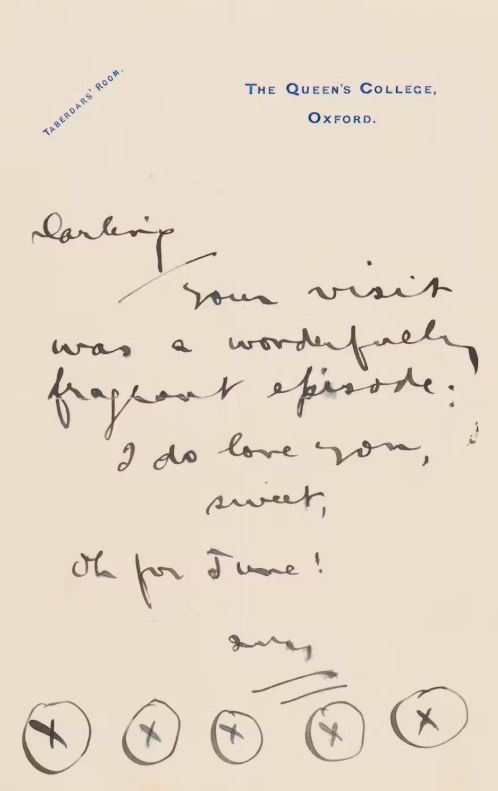 TABERDARS' ROOM.
THE QUEEN'S COLLEGE,
OXFORD.
Darling
Your visit
was a wonderfully
fragrant episode:
I do love you,
sweet,
Oh for June!
x x x x x